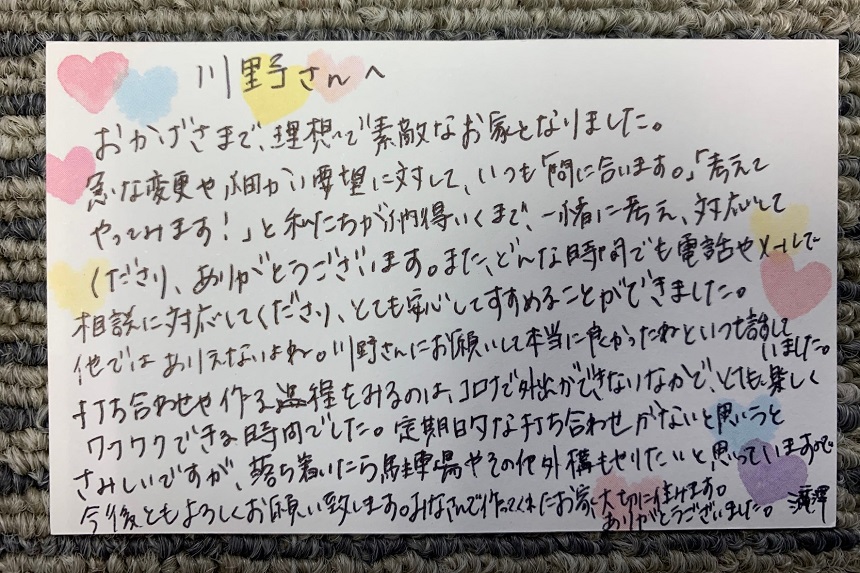 川野さんへ
おかげさまで、理想で素敵なお家となりました。
急な変更や細かい要望に対して、いつも「間に合います。」「考えて
やってみます!」と私たちが納得いくまで、一緒に考え、対応して
くださり、ありがとうございます。また、どんな時間でも電話やメールで
相談に対応してくださり、とても安心してすすめることができました。
他ではありえないよね。川野さんにお願いして本当に良かったねといつも話して
いました。
打ち合わせや作る過程をみるのは、コロナで外出ができないなかで、とても楽しく
ワクワクできる時間でした。定期的な打ち合わせがないと思うと
さみしいですが、落ち着いたら駐車場やその他外構もやりたいと思っていますので
今後ともよろしくお願い致します。みなさんで作ってくれたお家、大切に住みます。
ありがとうございました。 瀧澤